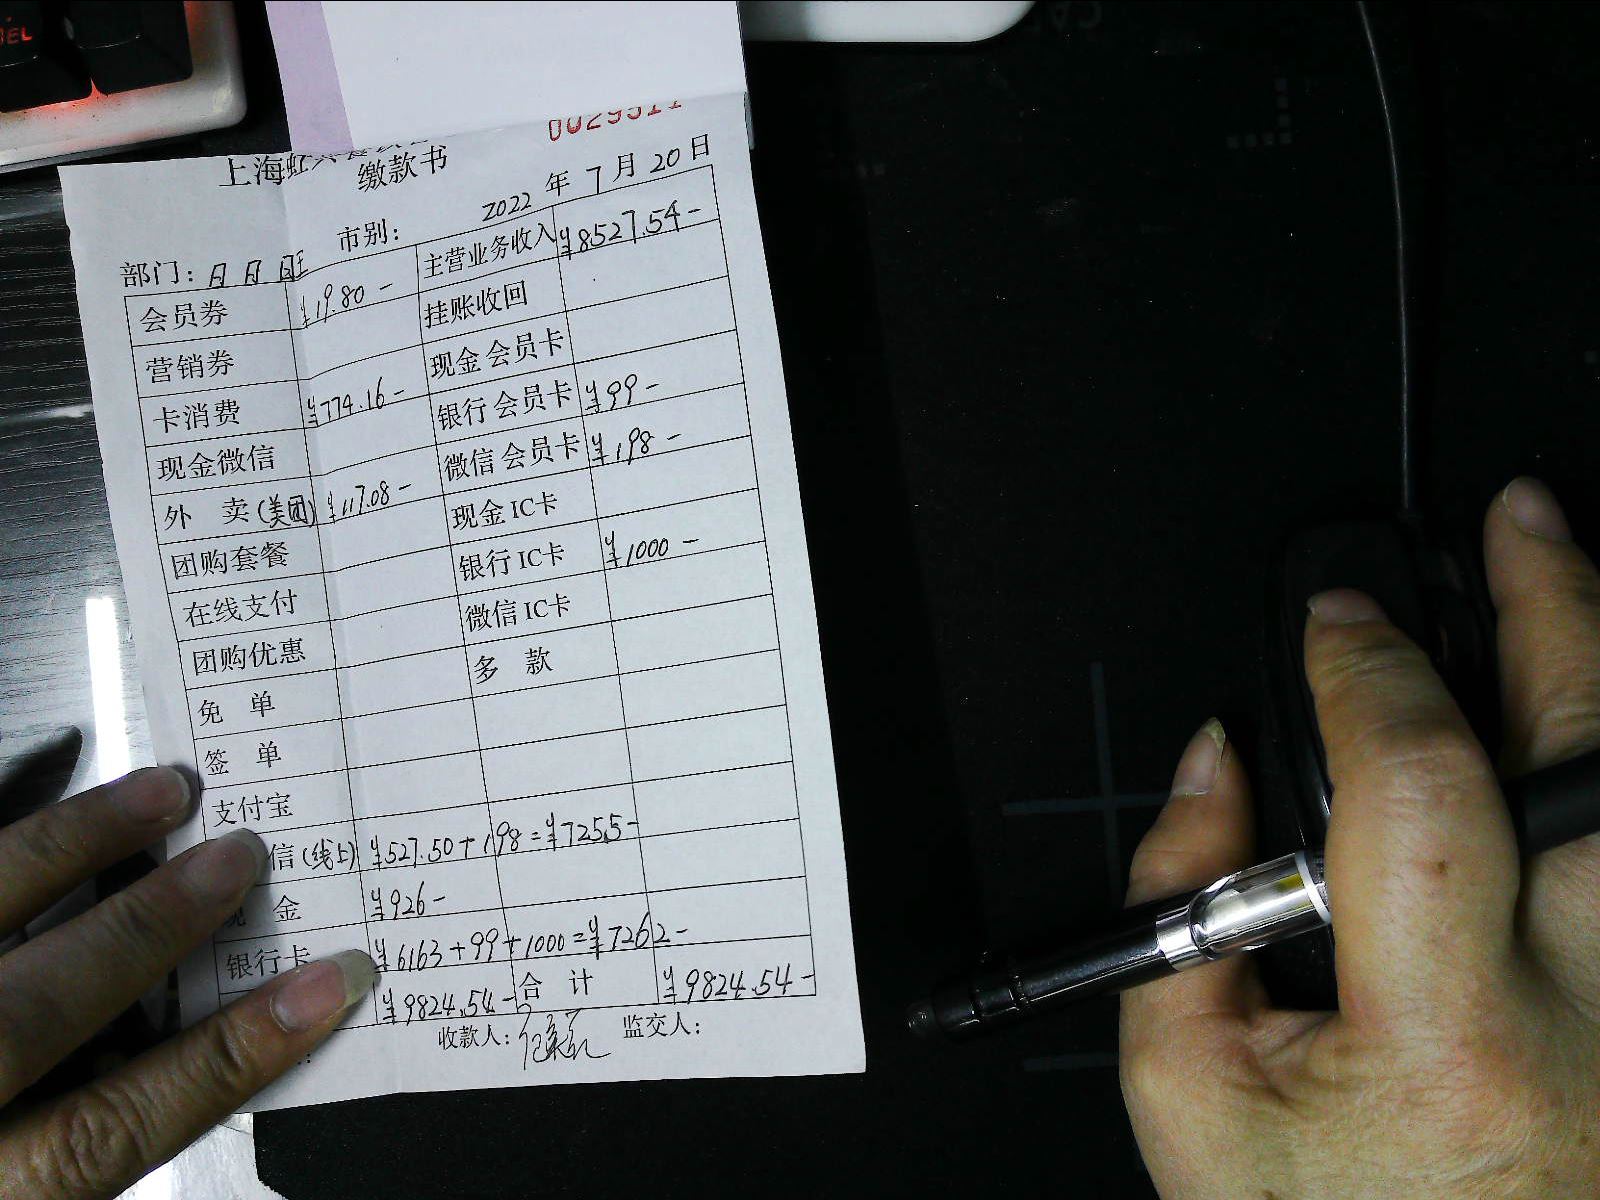 0029311
上海虹
缴款书
2022 年 7 月 20 日
市别：
部门：
会员券 ¥19.80- 主营业务收入 ¥8527.54-
营销券 挂账收回
卡消费 ¥774.16- 现金会员卡
现金微信 银行会员卡 ¥99-
外 卖(美团) ¥117.08- 微信会员卡 ¥198-
团购套餐 现金IC卡
在线支付 银行IC卡 ¥1000-
团购优惠 微信IC卡
免 单 多 款
签 单
支付宝
信(线上) ¥527.50+198=¥725.5-
现 金 ¥926-
银行卡 ¥6163+99+1000=¥7262-
¥9824.54- 合 计 ¥9824.54-
收款人： 监交人：